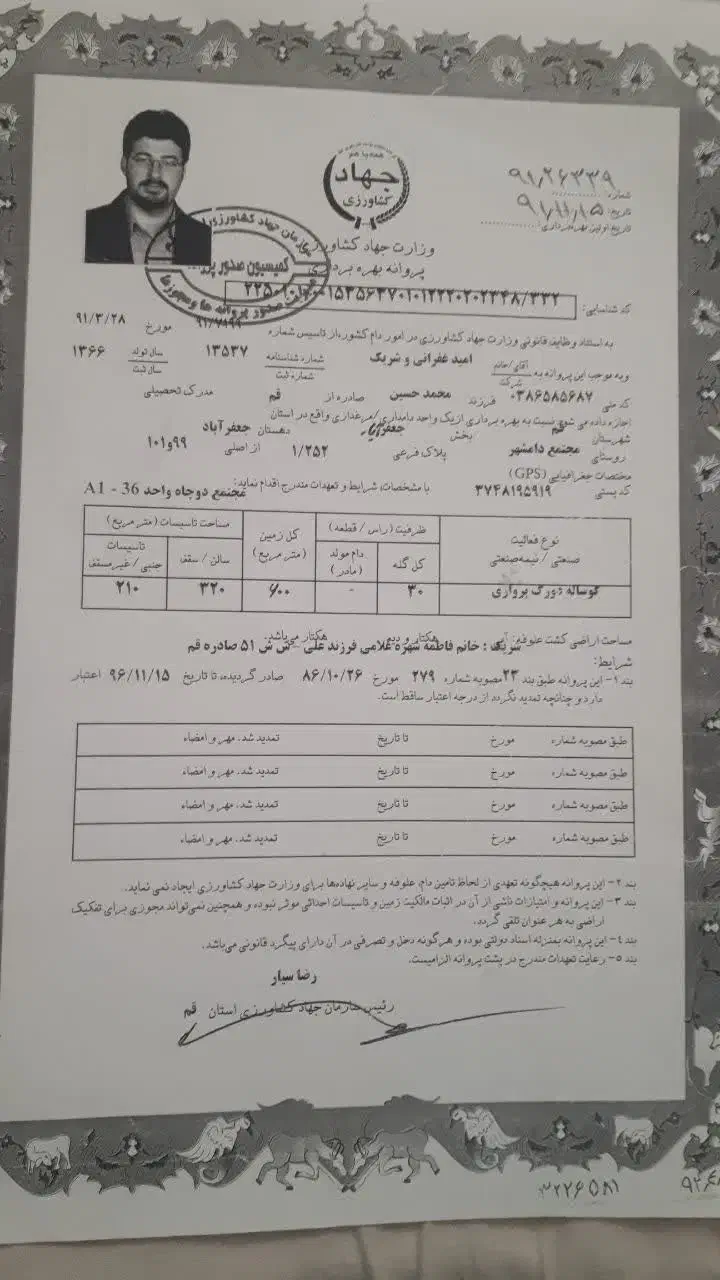 همه با هم
جهاد
کشاورزی
شماره: ۹۱٫۲۶۳۳۹
تاریخ: ۹۱٫۱۱٫۱۵
تاریخ اولین بهره‌برداری:
وزارت جهاد کشاورزی
پروانه بهره برداری
سازمان جهاد کشاورزی
کمیسیون صدور
صدور پروانه ها و مجوزها
کد شناسایی:
به استناد وظایف قانونی وزارت جهاد کشاورزی در امور دام کشور، از تاسیس شماره مورخ ۹۱/۳/۲۸
و به موجب این پروانه به آقای/خانم شرکت امید غفرانی و شریک شماره شناسنامه شماره ثبت ۱۳۵۳۷ سال تولد سال ثبت ۱۳۶۶
کد ملی ۰۳۸۶۵۸۵۶۸۷ فرزند محمد حسین صادره از قم مدرک تحصیلی
اجازه داده می شود نسبت به بهره برداری از یک واحد دامداری/مرغداری واقع در استان
شهرستان قم بخش جعفرآباد دهستان جعفرآباد
روستای مجتمع دامشهر پلاک فرعی ۱/۲۵۲ از اصلی ۹۹و۱۰۱
مختصات جغرافیایی (GPS)
کد پستی ۳۷۴۸۱۹۵۹۱۹ با مشخصات، شرایط و تعهدات مندرج اقدام نماید: مجتمع دوچاه واحد A1 - 36
نوع فعالیت صنعتی / نیمه‌صنعتی ظرفیت (راس / قطعه) کل زمین (متر مربع) مساحت تاسیسات (متر مربع)
کل گله دام مولد (مادر) سالن / سقف تاسیسات جنبی / غیرمسقف
گوساله دورگ پرواری ۳۰ - ۶۰۰ ۳۲۰ ۲۱۰
مساحت اراضی کشت علوفه: آبی هکتار و دیم هکتار می‌باشد.
شریک : خانم فاطمه شهره غلامی فرزند علی - ش ش ۵۱ صادره قم
شرایط:
بند ۱- این پروانه طبق بند ۲۳ مصوبه شماره ۲۷۹ مورخ ۸۶/۱۰/۲۶ صادر گردیده، تا تاریخ ۹۶/۱۱/۱۵ اعتبار
دارد و چنانچه تمدید نگردد از درجه اعتبار ساقط است.
طبق مصوبه شماره مورخ تا تاریخ تمدید شد. مهر و امضاء
طبق مصوبه شماره مورخ تا تاریخ تمدید شد. مهر و امضاء
طبق مصوبه شماره مورخ تا تاریخ تمدید شد. مهر و امضاء
طبق مصوبه شماره مورخ تا تاریخ تمدید شد. مهر و امضاء
بند ۲- این پروانه هیچگونه تعهدی از لحاظ تامین دام، علوفه و سایر نهاده‌ها برای وزارت جهاد کشاورزی ایجاد نمی نماید.
بند ۳- این پروانه و امتیازات ناشی از آن در اثبات مالکیت زمین و تاسیسات احداثی موثر نبوده و همچنین نمی‌تواند مجوزی برای تفکیک
اراضی به هر عنوان تلقی گردد.
بند ۴- این پروانه بمنزله اسناد دولتی بوده و هرگونه دخل و تصرفی در آن دارای پیگرد قانونی می‌باشد.
بند ۵- رعایت تعهدات مندرج در پشت پروانه الزامیست.
رضا سیار
رئیس سازمان جهاد کشاورزی استان قم